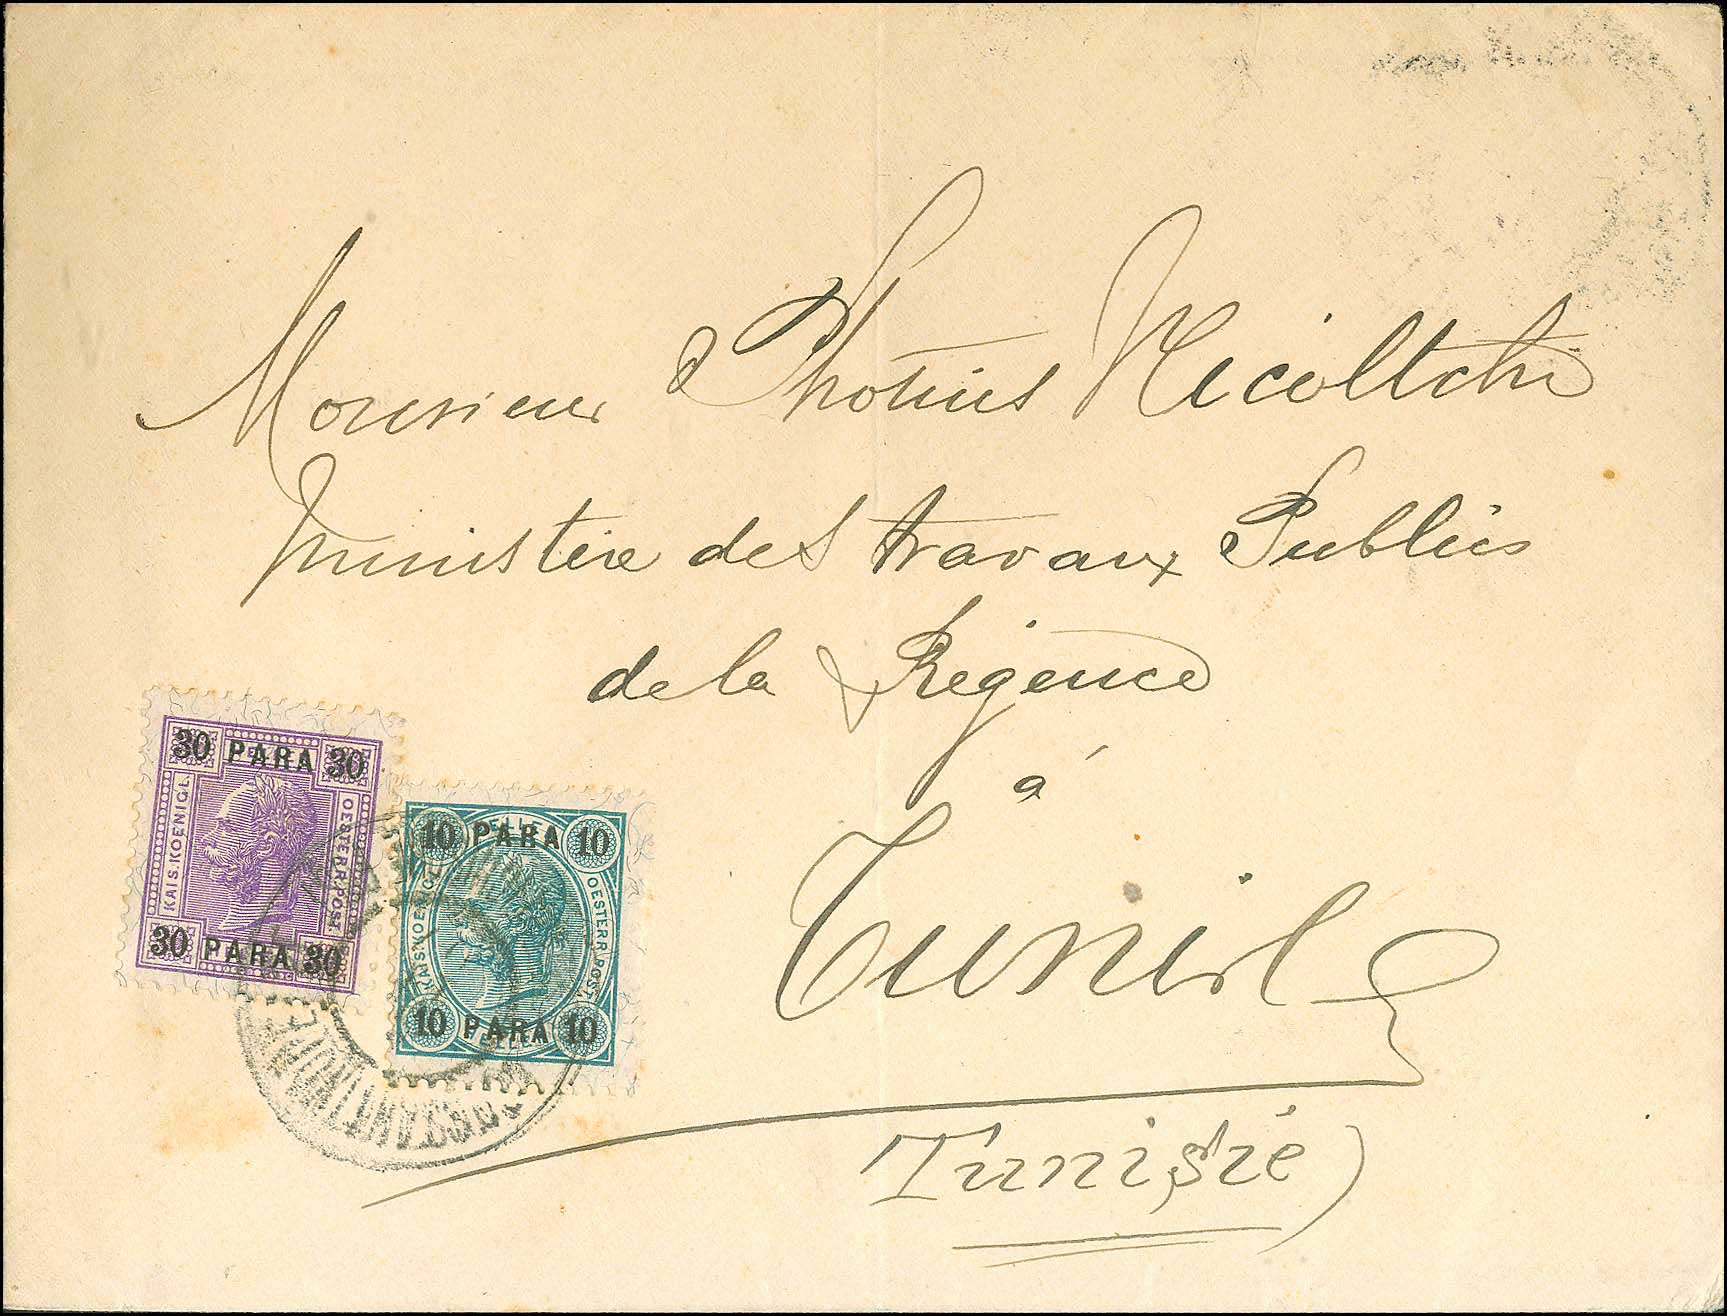 Monsieur Photius Nicoltchi
Ministère des travaux Publics
de la Régence
à
Tunis
Tunisie)
30 PARA 30
KAIS. KOENIGL.
OESTERR. POST.
30 PARA 30
10 PARA 10
KAIS. KOENIGL.
OESTERR. POST.
10 PARA 10